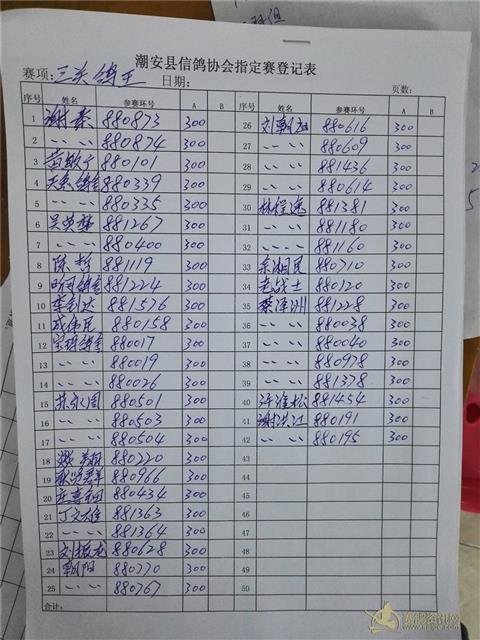 潮安县信鸽协会指定赛登记表
赛项: 三关鸽王 日期: 页数:
序号 姓名 参赛环号 A B 序号 姓名 参赛环号 A B
1 谢泰 880873 300 26 刘朝 880616 300
2 〃 〃 880874 300 27 〃 〃 880609 300
3 黄 880101 300 28 〃 〃 881436 300
4 天 880339 300 29 〃 〃 880614 300
5 〃 〃 880335 300 30 林 881381 300
6 吴 881267 300 31 〃 〃 881180 300
7 〃 〃 880400 300 32 〃 〃 881160 300
8 陈哲 881119 300 33 余湘民 880710 300
9 881224 300 34 老战士 880120 300
10 李 达 881576 300 35 蔡泽洲 881228 300
11 成伟民 880158 300 36 〃 〃 880038 300
12 880017 300 37 〃 〃 880040 300
13 〃 〃 880019 300 38 〃 〃 880978 300
14 〃 〃 880026 300 39 〃 〃 881378 300
15 880501 300 40 许淮松 881454 300
16 〃 〃 880503 300 41 谢洪江 880191 300
17 〃 〃 880504 300 42 〃 〃 880195 300
18 880220 300 43
19 880966 300 44
20 880434 300 45
21 丁文雄 881363 300 46
22 〃 〃 881364 300 47
23 刘振龙 880628 300 48
24 朝阳 880770 300 49
25 〃 〃 880767 300 50
合计: